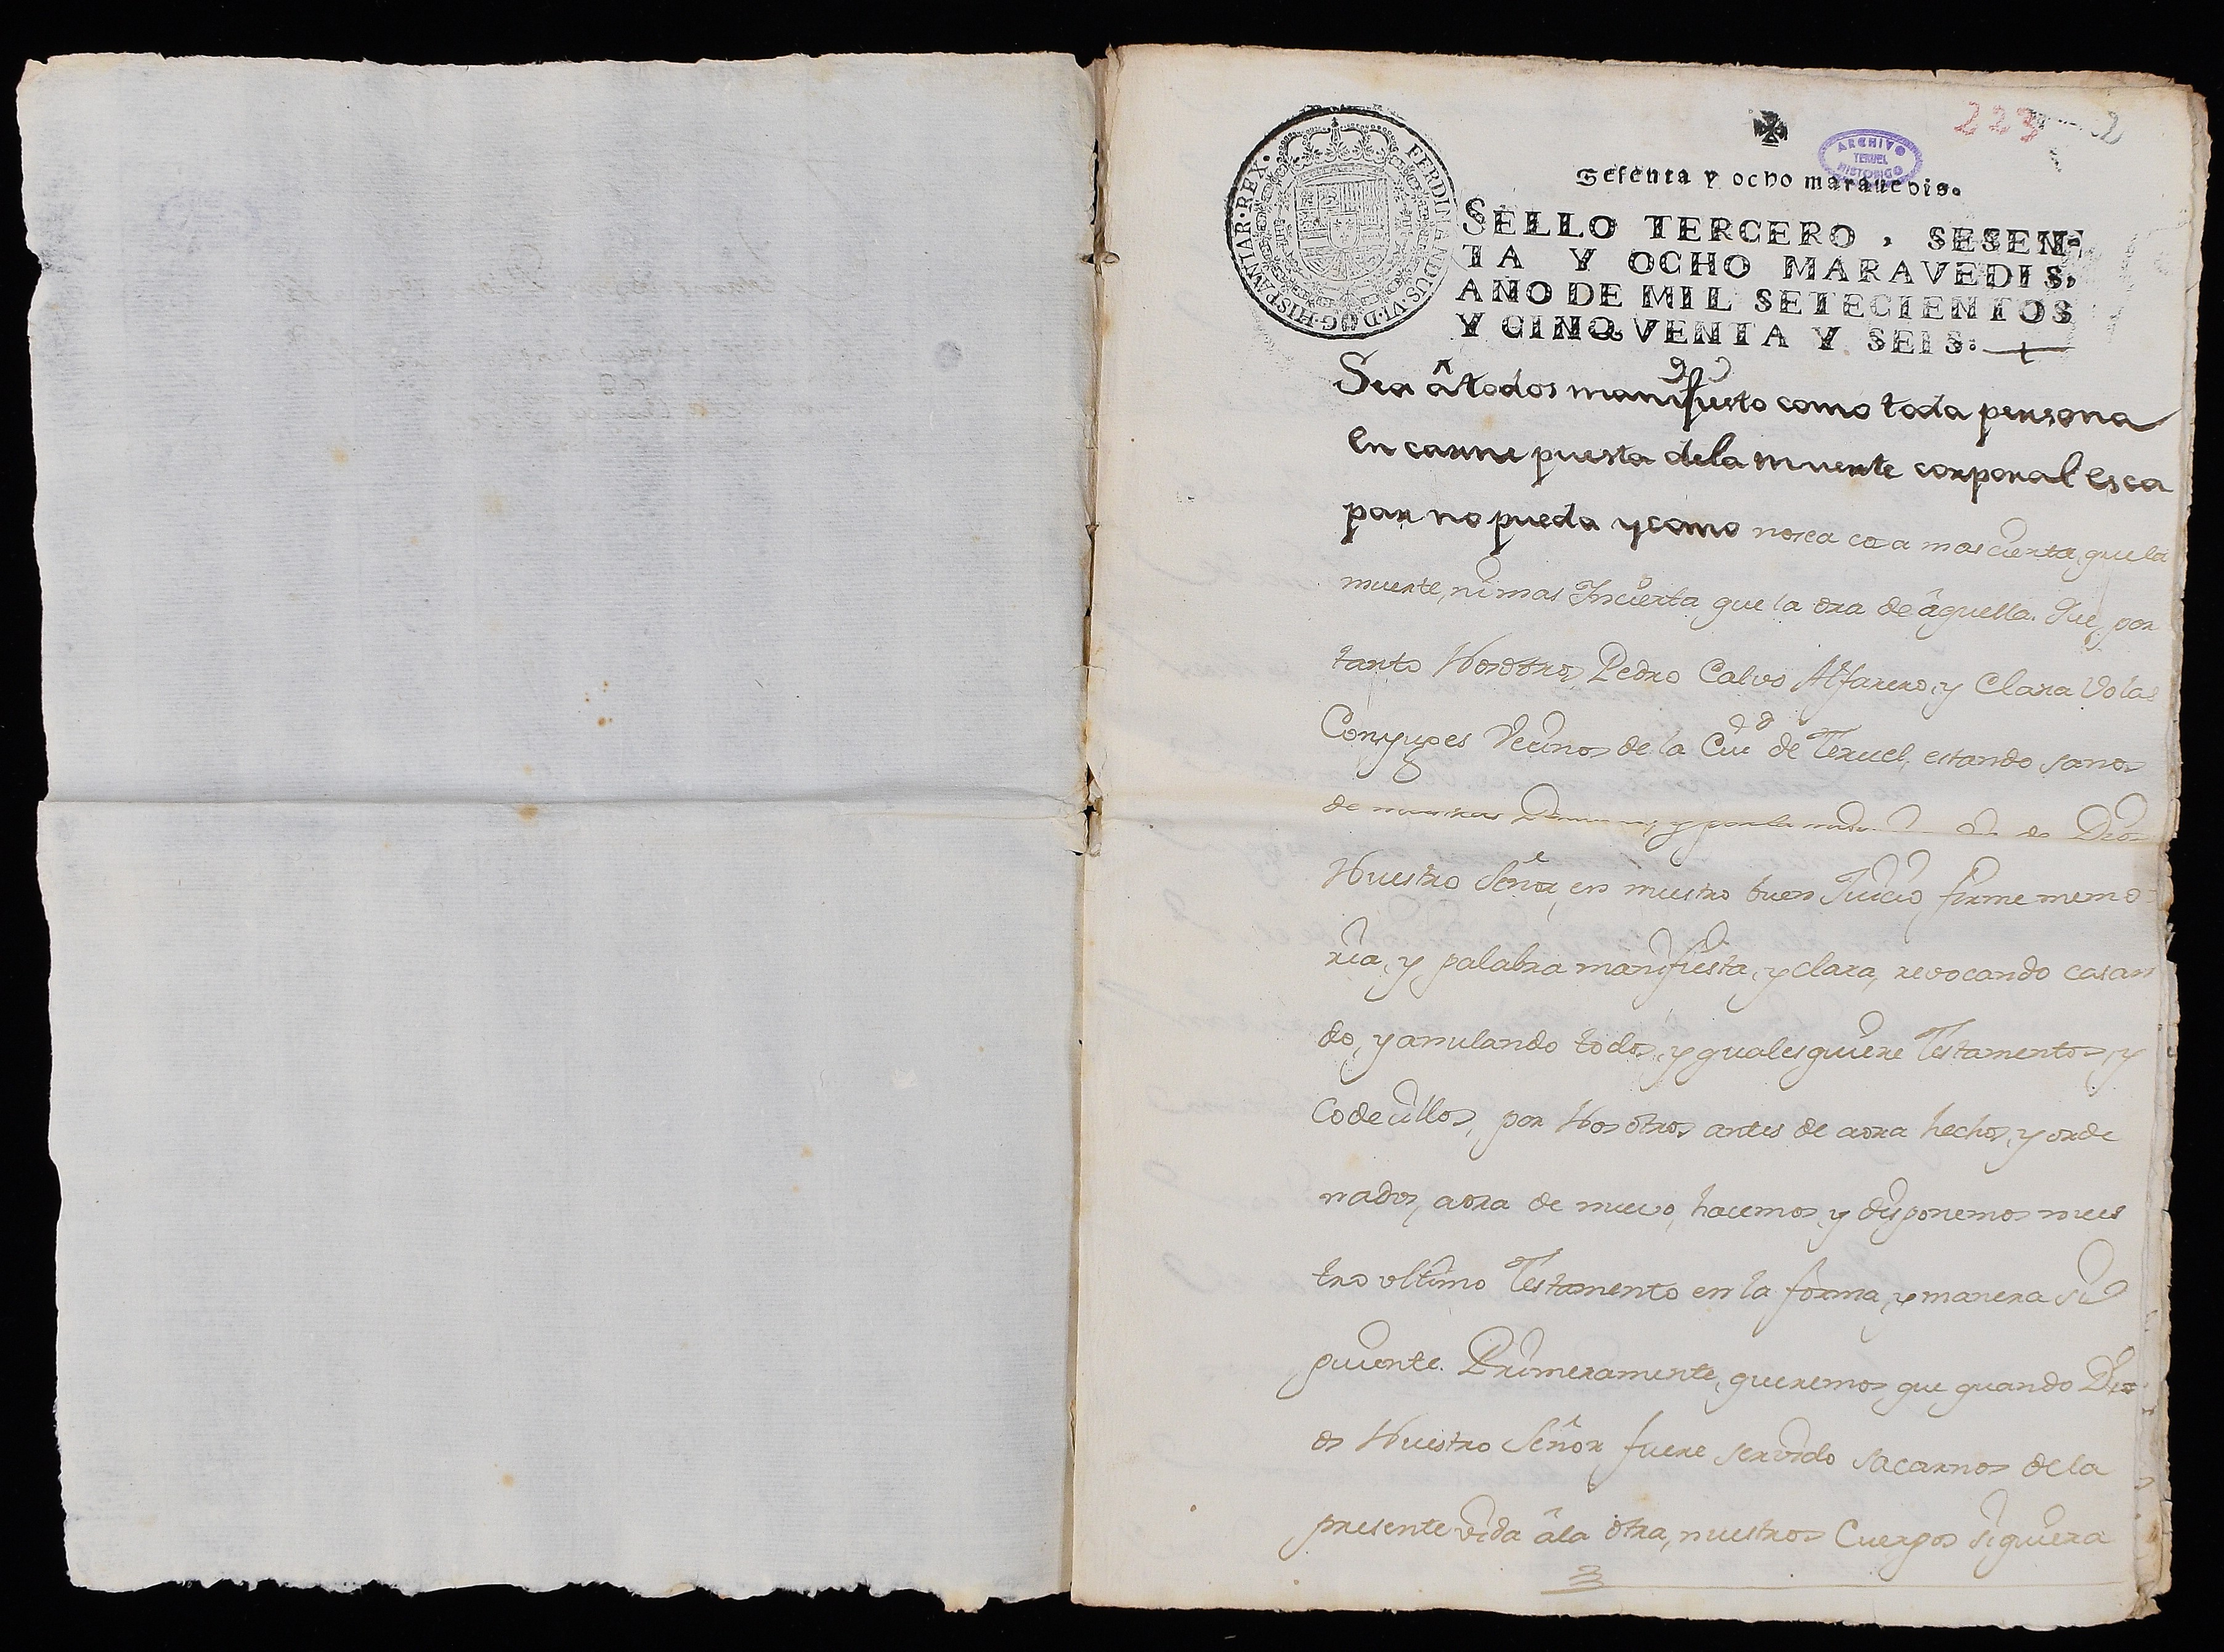 223
2
ARCHIVO
TERUEL
HISTORICO
FERDINANDUS·VI·D·G·HISPANIAR·REX·
Sesenta y ocho marauedis.
SELLO TERCERO, SESEN-
TA Y OCHO MARAVEDIS,
AÑO DE MIL SETECIENTOS
Y CINQVENTA Y SEIS.
Sea â todos manifiesto como toda persona
en carne puesta dela muerte corporal esca
par no pueda y como no sea cosa mas cierta, que la
muerte, ni mas Incierta que la ora de âquella. Que, por
tanto Nosotros Pedro Calvo Alfarero, y Clara Volas
Conyuges Vecinos de la Ciud de Teruel, estando sanos
de nuestras y por la de Dios
Nuestro Señor, en nuestro buen Juicio, firme memo
ria, y palabra manifiesta, y clara, revocando casan
do, y anulando todos, y qualesquiere Testamentos, y
Codecillos, por Nosotros antes de aora hechos, y orde
nados, aora de nuevo, hacemos, y disponemos nues
tro vltimo Testamento en la forma, y manera si
guiente. Primeramente, queremos que quando Dio
s Nuestro Señor fuere servido sacarnos de la
presente vida âla otra, nuestros Cuerpos siquiera